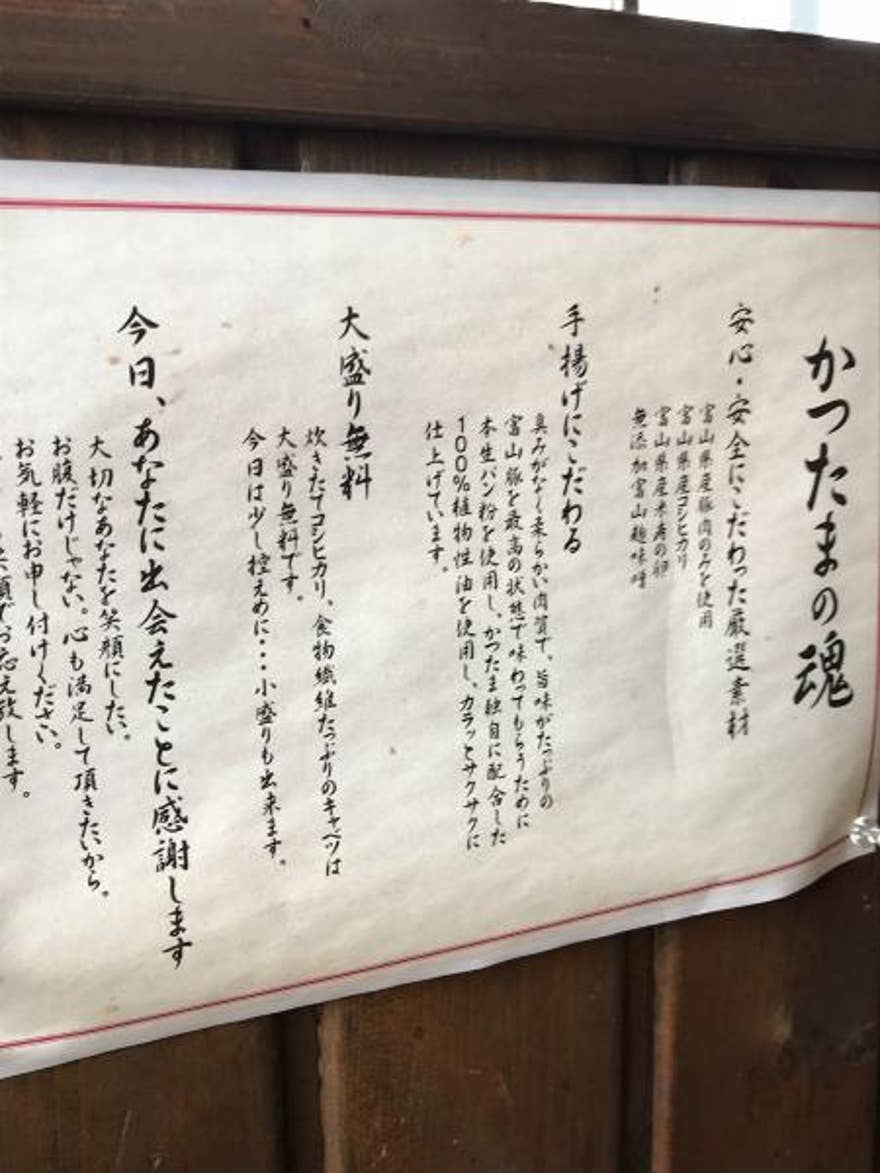 かつたまの魂
安心・安全にこだわった厳選素材
富山県産豚肉のみを使用
富山県産コシヒカリ
富山県産米寿の卵
無添加富山麹味噌
手揚げにこだわる
臭みがなく柔らかい肉質で、旨味がたっぷりの
富山豚を最高の状態で味わってもらうために
本生パン粉を使用し、かつたま独自に配合した
100%植物性油を使用し、カラッとサクサクに
仕上げています。
大盛り無料
炊きたてコシヒカリ、食物繊維たっぷりのキャベツは
大盛り無料です。
今日は少し控えめに・・・小盛りも出来ます。
今日、あなたに出会えたことに感謝します
大切なあなたを笑顔にしたい。
お腹だけじゃない。心も満足して頂きたいから。
お気軽にお申し付けください。
笑顔でお応え致します。